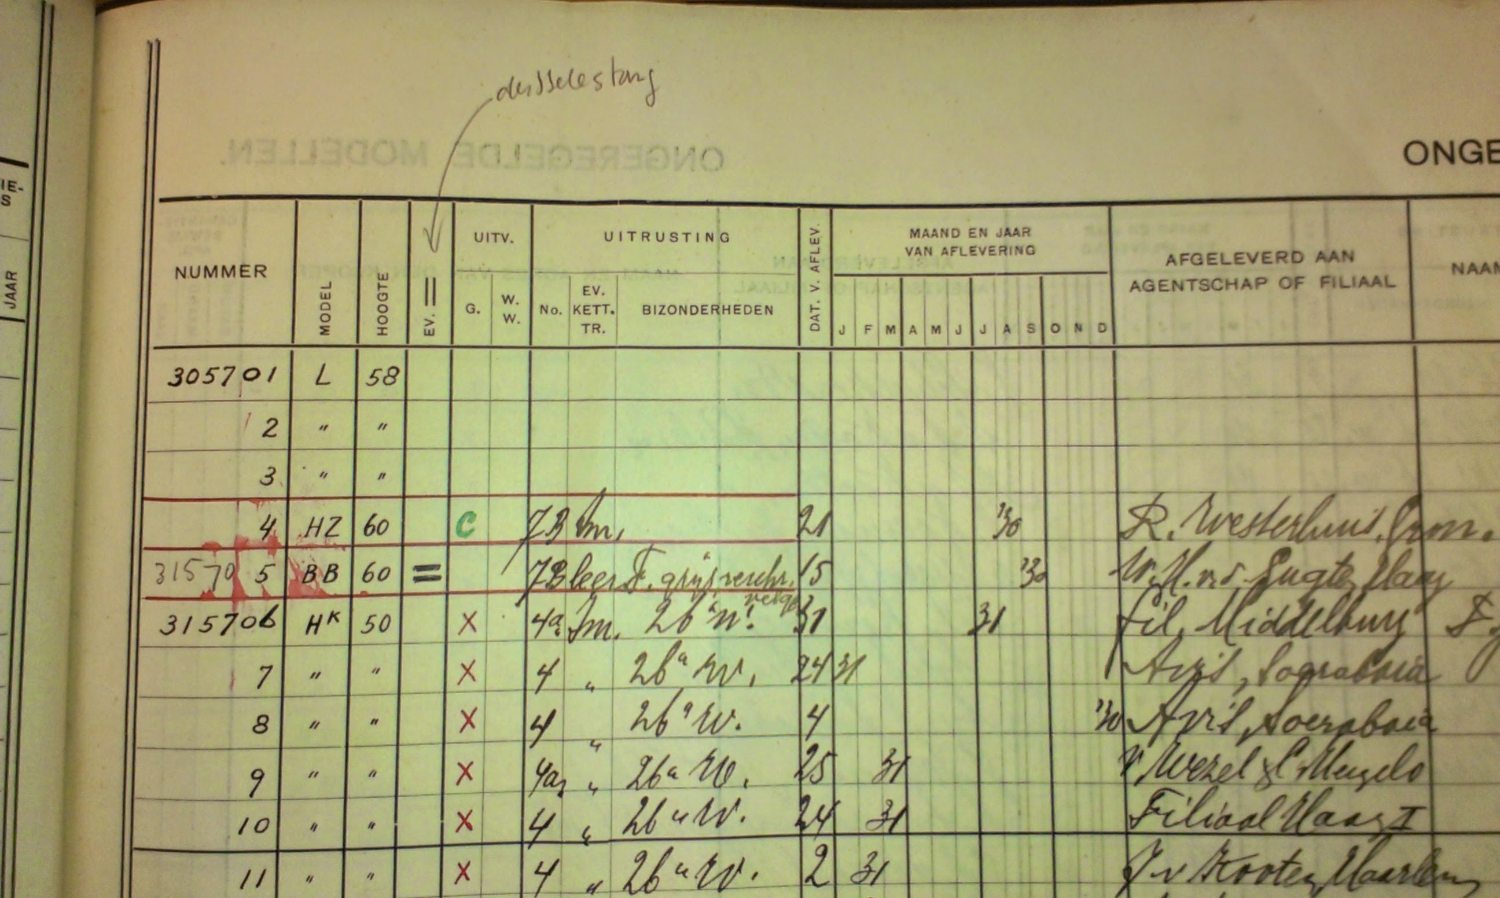 ONGEREGELDE MODELLEN.
ONGE
IE-
S
JAAR
NUMMER MODEL HOOGTE EV. = UITV. G. W. W. UITRUSTING No. EV. KETT. TR. BIZONDERHEDEN DAT. V. AFLEV. MAAND EN JAAR VAN AFLEVERING J F M A M J J A S O N D AFGELEVERD AAN AGENTSCHAP OF FILIAAL NAAM
305701 L 58
2 " "
3 " "
4 HZ 60 C 7B 21 '30 R. Westerhuis, Gron.
315705 BB 60 = 7B leer F. grijs 15 '30 W. H. v.d. Haag
315706 HK 50 X 4a 26a W. 31 31 Fil. Middelburg
7 " " X 4 " 26a W. 24 31 Avis, Soerabaia
8 " " X 4 " 26a W. 4 '30 Avis, Soerabaia
9 " " X " 26a W. 25 31 v Wezel & C. Hengelo
10 " " X 4 " 26a W. 24 31 Filiaal Haag I
11 " " X 4 " 26a W. 2 31 J v Kooten, Haarlem